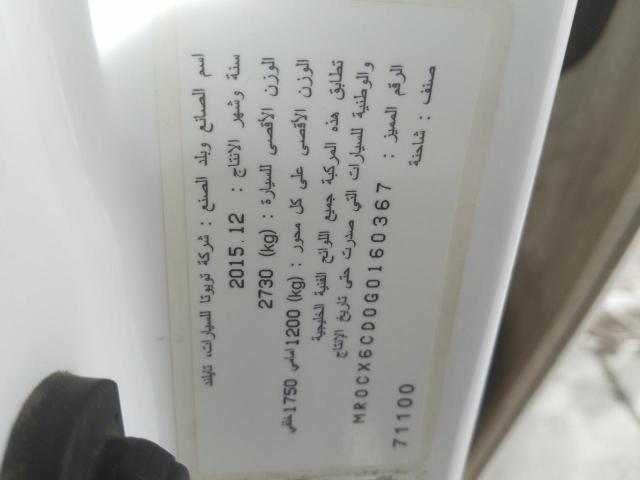 اسم الصانع وبلد الصنع : شركة تويوتا للسيارات، تايلند
سنة وشهر الانتاج : 2015.12
الوزن الأقصى للسيارة : (kg) 2730
الوزن الأقصى على كل محور : (kg) 1200 أمامي 1750 خلفي
تطابق هذه المركبة جميع اللوائح الفنية الخليجية
والوطنية للسيارات التي صدرت حتى تاريخ الإنتاج
الرقم المميز : MR0CX6CD0G0160367
صنف : شاحنة
71100